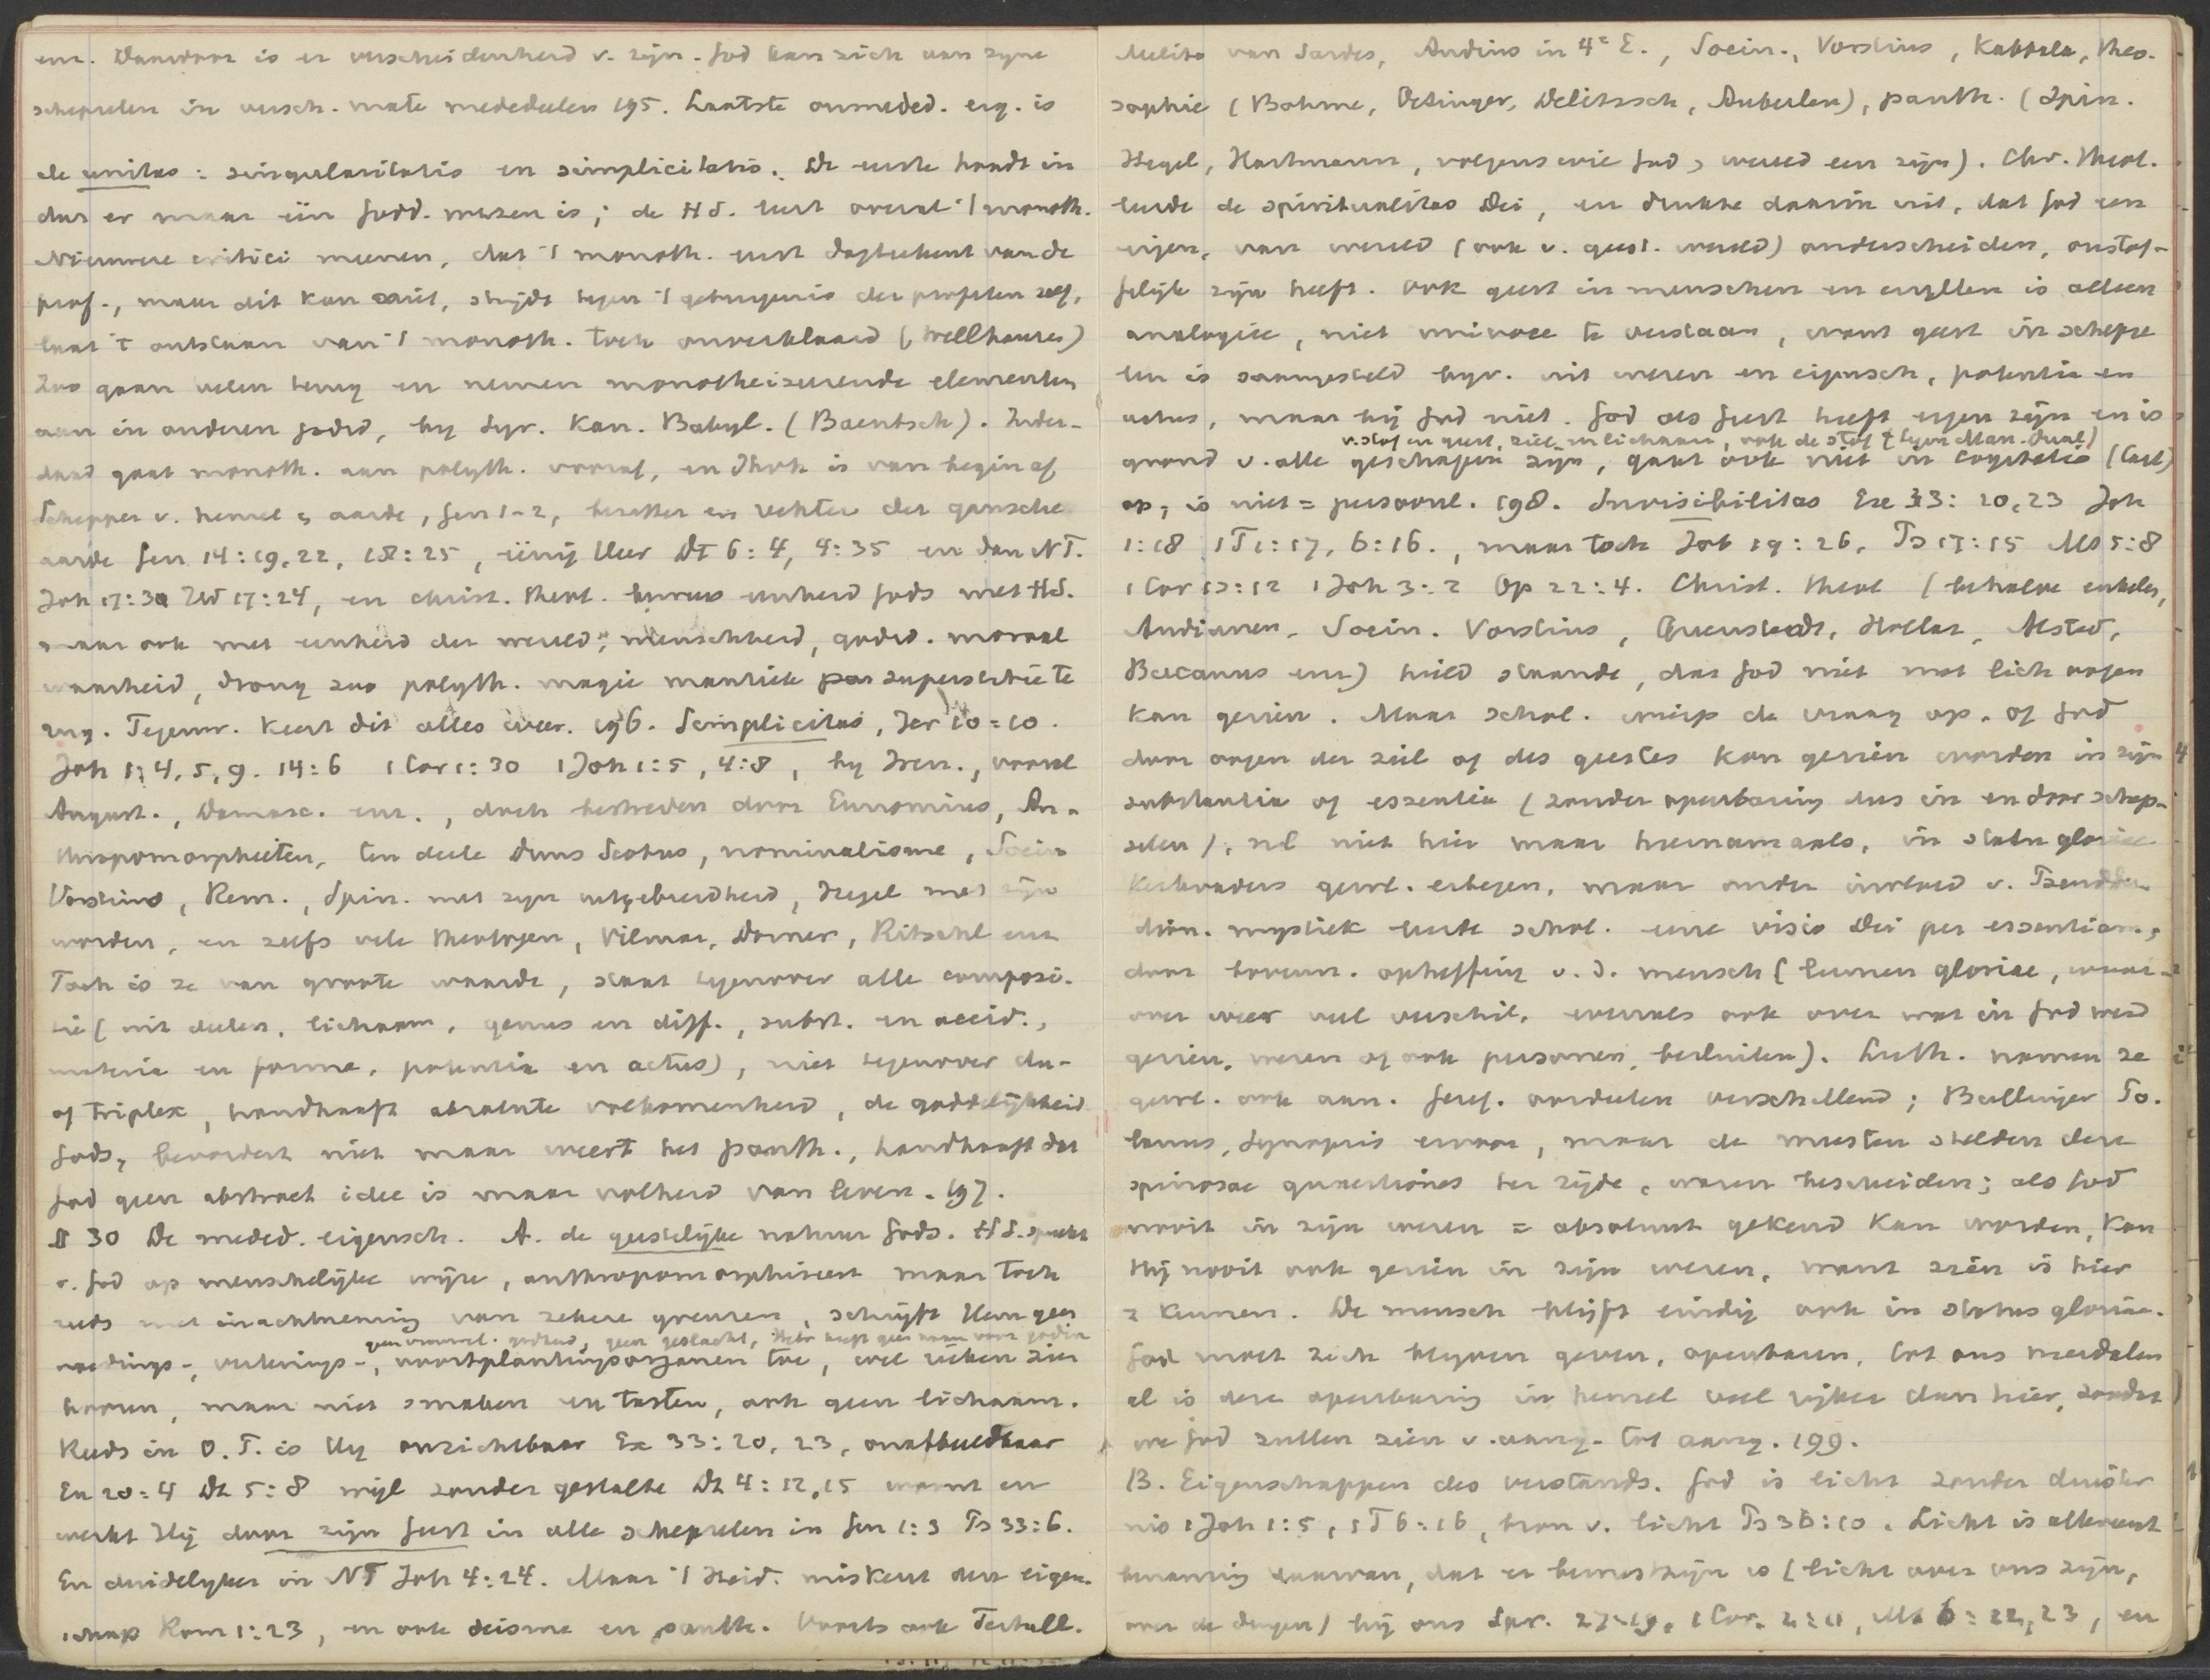 enz. Daardoor is er verscheidenheid v. zijn. God kan zich aan zyne
schepselen in versch. mate mededeelen 195. Laatste onmeded. eig. is
de unitas: singularitatis en simplicitatis. De eerste houdt in
dat er maar één Godd. wezen is; de HS. leert overal 't monoth.
Nieuwere critici meenen, dat 't monoth. eerst dagteekent van de
prof., maar dit kan niet, strijdt tegen 't getuigenis der profeten zelf,
laat 't ontstaan van 't monoth. toch onverklaard (Wellhausen)
Zoo gaan velen terug en nemen monotheizeerende elementen
aan in anderen godsd, by Syr. Kan. Babyl. (Baentsch). Inder-
daad gaat monoth. aan polyth. vooraf, en Jhvh is van begin af
Schepper v. hemel en aarde, Gen 1-2, bezitter en rechter der gansche
aarde Gen 14:19,22, 18:25, eenig Heer Dt 6:4, 4:35 en dan NT.
Joh 17:3 Hd 17:24, en christ. theol. bewees eenheid Gods met HS.
maar ook met eenheid der wereld, menschheid, godsd. moraal
waarheid, drong zoo polyth. magie mantiek superstitie te
rug. Tegenw. keert dit alles weer. 196. Simplicitas, Jer 10:10.
Joh 1:4,5,9. 14:6 1 Cor 1:30 1 Joh 1:5, 4:8, by Iren., vooral
August., Damasc. enz., doch bestreden door Eunomius, An-
thropomorphieten, ten deele Duns Scotus, nominalisme, Socin
Vorstius, Rem., Spin. met zyn uitgebreidheid, Hegel met zijn
worden, en zelfs vele theologen, Vilmar, Dorner, Ritschl enz
Toch is ze van groote waarde, staat tegenover alle composi-
tie (uit deelen, lichaam, genus en diff., subst. en accid.,
materie en forma, potentia en actus), niet tegenover du-
of triplex, handhaaft absolute volkomenheid, de goddelijkheid
Gods, bevordert niet maar weert het panth., handhaaft dat
God geen abstract idee is maar volheid van leven. 197.
§ 30 De meded. eigensch. A. de geestelijke natuur Gods. HS. spreekt
v. God op menschelijke wijze, anthropomorphiseert maar toch
reeds met inachtneming van zekere grenzen, schrijft Hem geen
geen vrouwel. godheid, geen geslacht, Hebr heeft geen naam voor godin
voedings-, verterings-, voortplantingsorganen toe, wel rieken zien
hooren, maar niet smaken en tasten, ook geen lichaam.
Reeds in O.T. is Hy onzichtbaar Ex 33:20,23, onafbeeldbaar
Ex 20:4 Dt 5:8 wijl zonder gestalte Dt 4:12,15 woont en
werkt Hij door zijn Geest in alle schepselen in Gen 1:3 Ps 33:6.
En duidelyker in NT Joh 4:24. Maar 't Heid. miskent deze eigen-
schap Rom 1:23, en ook deisme en panth. Voorts ook Tertull.
Melito van Sardes, Audius in 4e E., Socin., Vorstius, Kabbala, theo-
sophie (Böhme, Oetinger, Delitzsch, Auberlen), panth. (Spin.
Hegel, Hartmann, volgens wie God en wereld een zijn). Chr. theol.
leerde de spiritualitas Dei, en drukte daarin uit, dat God een
eigen, van wereld (ook v. geest. wereld) onderscheiden, onstof-
felijk zijn heeft. Ook geest in menschen en engelen is alleen
analogice, niet univoce te verstaan, want geest in schepse
len is saamgesteld bijv. uit wezen en eigensch, potentia en
actus, maar bij God niet. God als Geest heeft eigen zijn en is
v. stof en geest, ziel en lichaam, ook de stof (tegen Man. dual)
grond v. alle geschapen zijn, gaat ook niet in cogitatio (Cart)
op, is niet = persoonl. 198. Invisibilitas Exe 33:20,23 Joh
1:18 1T 1:17, 6:16., maar toch Job 19:26, Ps 17:15 Mt 5:8
1 Cor 13:12 1 Joh 3:2 Op 22:4. Christ. theol (behalve enkelen,
Audianen, Socin. Vorstius, Quenstedt, Hollaz, Alsted,
Becanus enz) hield staande, dat God niet met lich oogen
kan gezien. Maar schol. wierp de vraag op, of God
door oogen der ziel of des geestes kan gezien worden in zijn
substantia of essentia (zonder openbaring dus in en door schep-
selen), nl niet hier maar hiernamaals, in statu gloriae
Kerkvaders gewl. ertegen, maar onder invloed v. Pseudodi
dion. mystiek leerde schol. eene visio Dei per essentiam,
door bovenn. opheffing v. d. mensch (lumen gloriae, waar-
over weer veel verschil, evenals ook over wat in God werd
gezien, wezen of ook personen, besluiten). Luth. namen ze
gewl. ook aan. Geref. oordeelen verschillend; Bullinger Po-
lanus, Synopsis ervoor, maar de meesten stelden deze
spinosae quaestiones ter zijde, waren bescheiden; als God
nooit in zijn wezen = absoluut gekend kan worden, kan
Hij nooit ook gezien in zijn wezen, want zien is hier
= kennen. De mensch blijft eindig ook in status gloriae.
God moet zich blyven geven, openbaren, tot ons neerdalen
al is deze openbaring in hemel veel rijker dan hier, zoodat
we God zullen zien v. aang. tot aang. 199.
B. Eigenschappen des verstands. God is licht zonder duister
nis 1 Joh 1:5, 1T 6:16, bron v. licht Ps 36:10. Licht is allereerst
benaming daarvan, dat er bewustzijn is (licht over ons zijn,
over de dingen) bij ons Spr. 27:19, 1 Cor. 2:11, Mt 6:22,23, en